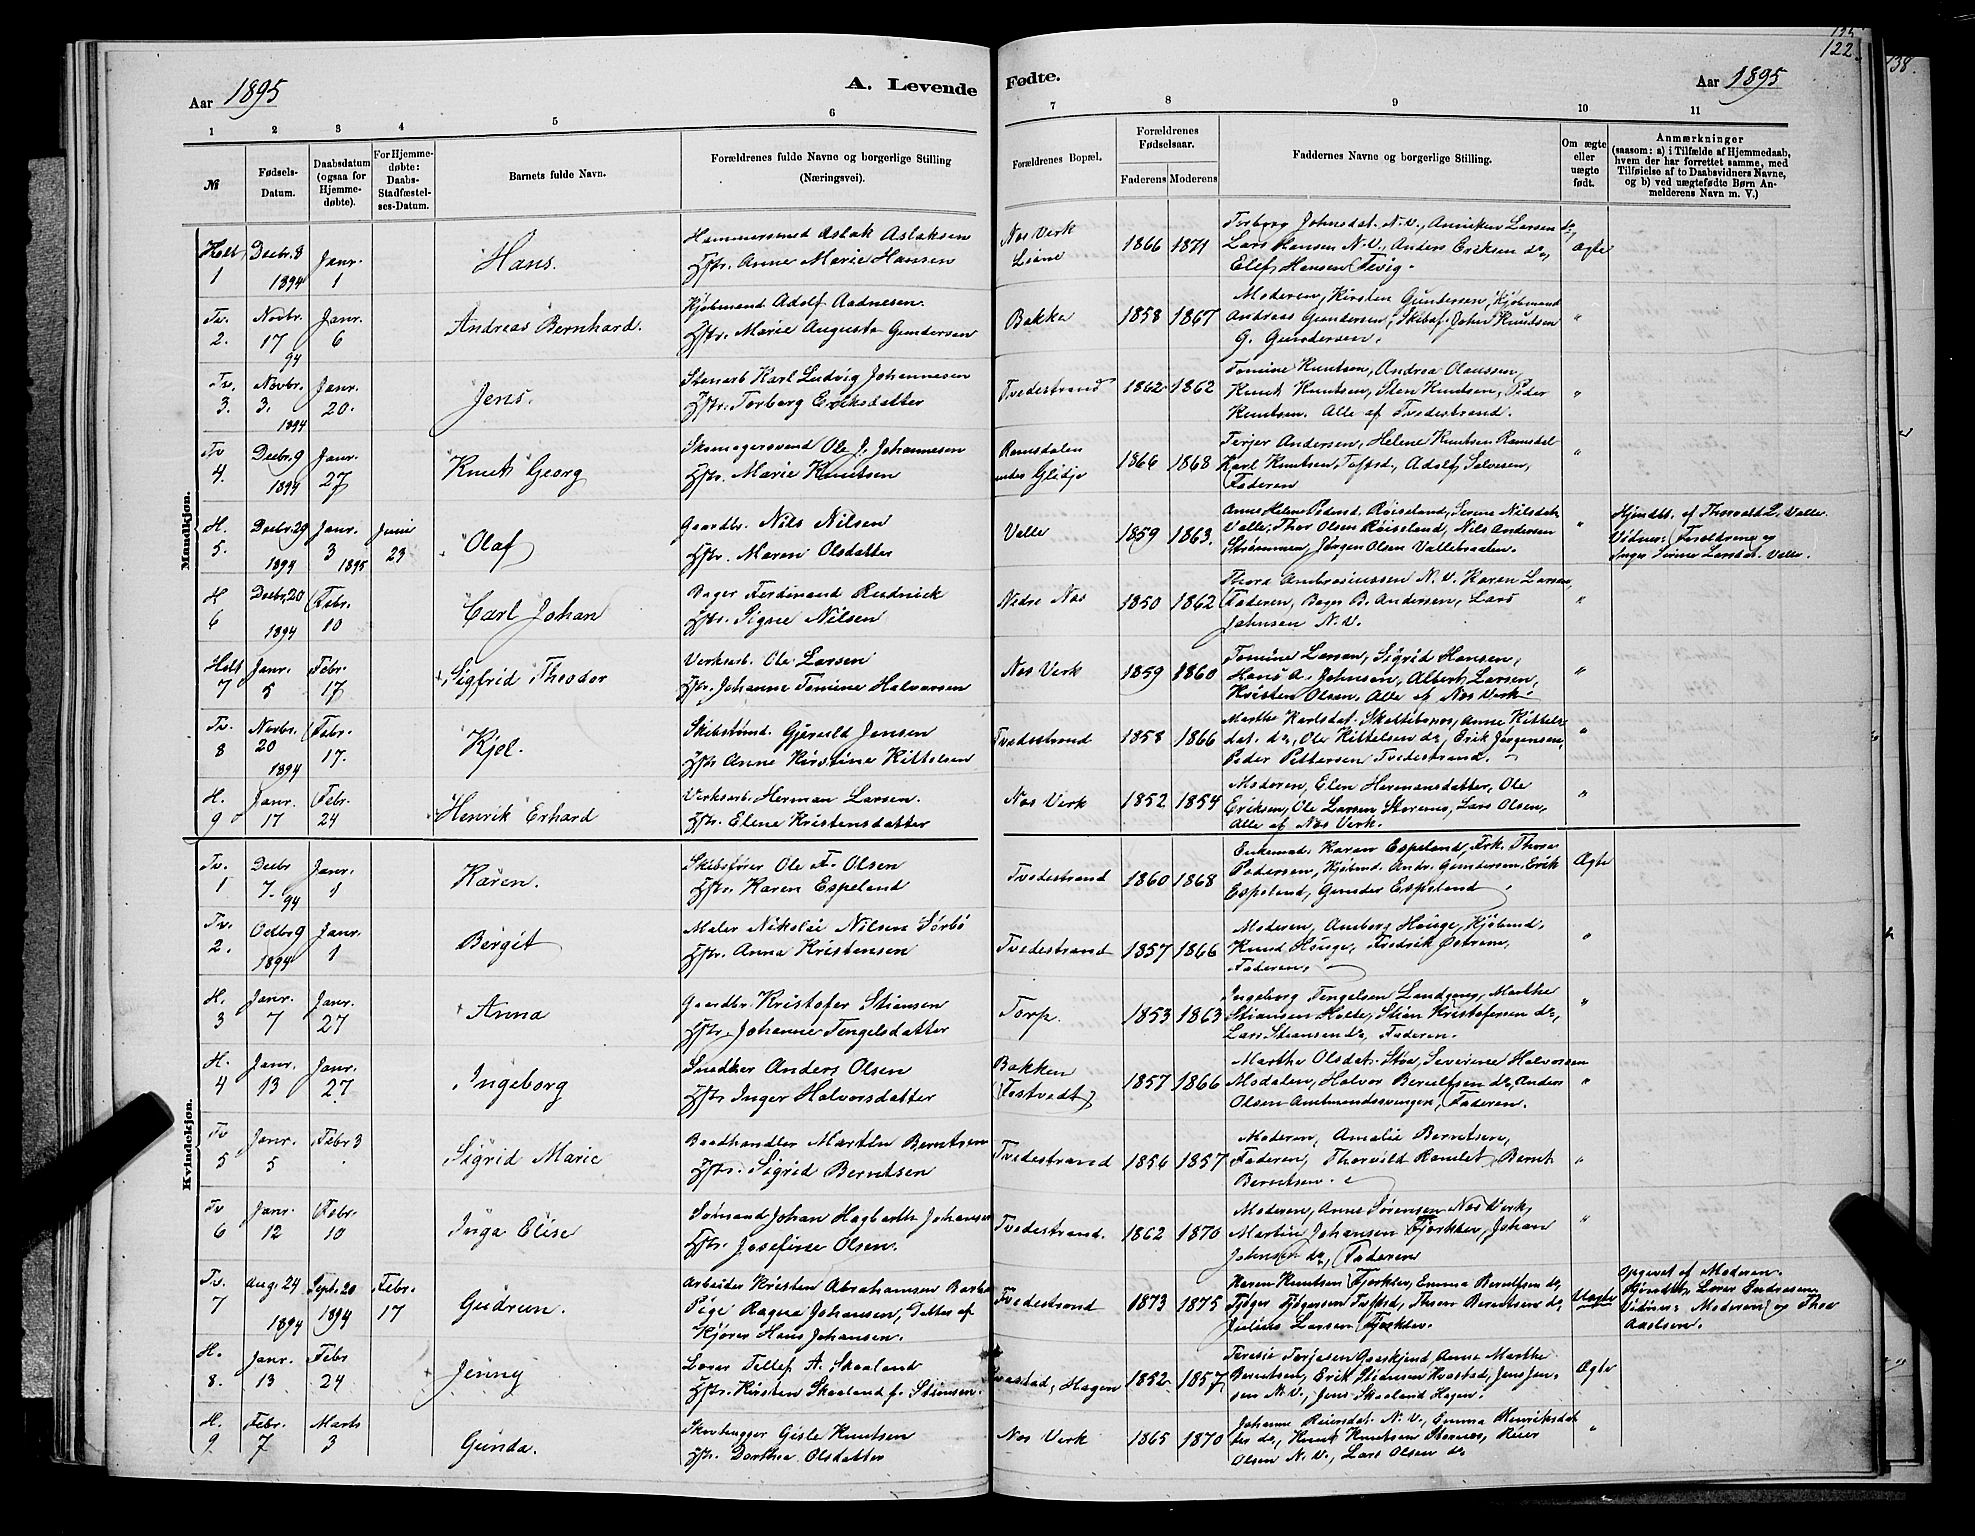 135
122.
138.
Aar 1895
A. Levende
Fødte.
Aar 1895
1 2 3 4 5 6 7 8 9 10 11
№
Fødsels-
Datum.
Daabsdatum
(ogsaa for
Hjemme-
døbte).
For Hjemme-
døbte:
Daabs-
Stadfæstel-
ses-Datum.
Barnets fulde Navn.
Forældrenes fulde Navne og borgerlige Stilling
(Næringsvei).
Forældrenes Bopæl.
Forældrenes
Fødselsaar.
Faderens Moderens
Faddernes Navne og borgerlige Stilling.
Om ægte
eller
uægte
født.
Anmærkninger
(saasom: a) i Tilfælde af Hjemmedaab,
hvem der har forrettet samme, med
Tilføielse af to Daabsvidners Navne,
og b) ved uægtefødte Børn An-
melderens Navn m. V.)
Mandkjøn.
Holt
1
Decbr. 8
1894
Janr.
1
Hans.
Hammersmed Aslak Aslaksen
Hstr. Anne Marie Hansen
Nes Verk
Liane
1866 1871
Torborg Johnsdat. N. V., Anniken Larsen do,
Lars Hansen N. V., Anders Eriksen do,
Elef Hansen Fevig.
Ægte
Tv.
2.
Novbr.
17
94
Janr.
6
Andreas Bernhard.
Kjøbmand Adolf Aadnesen.
Hstr. Marie Augusta Gundersen
Bakke
1858 1867
Moderen, Kirsten Gundersen, Kjøbmand
Andreas Gundersen, Skibsf. John Knudsen
G. Gundersen.
"
Tv.
3.
Novbr.
3.
1894
Janr.
20.
Jens.
Stenarb Karl Ludvig Johannesen
Hstr. Torborg Eriksdatter
Tvedestrand
1862 1862
Tomine Knutsen, Andrea Olaussen,
Knut Knutsen, Sten Knutsen, Peder
Knutsen. Alle af Tvedestrand.
"
Tv
4.
Decbr. 9
1894
Janr.
27
Knut Georg
Skomagersvend Ole J. Johannesen
Hstr. Marie Knutsen
Ramsdalen
1866 1868
Terjer Andersen, Helene Knutsen Ramsdal
Karl Knutsen Toftsd., Adolf Salvesen,
Faderen
"
H.
5.
Decbr. 29
1894
Janr.
3 1895
Juni
23
Olaf
Gaardbr. Nils Nilsen
Hstr. Maren Olsdatter
Valle
1859 1863.
Anne Helene Pedersd. Røiseland, Serene Nilsdat.
Valle, Thor Olsen Røiseland, Nils Andersen
Strømmen, Jørgen Olsen Vallebraaten.
"
Hjmdbt. af Thorvald L. Valle.
Vidner: Forældrene og
Inger Serine Larsdat. Valle.
H
6
Decbr. 20
1894
Febr.
10
Carl Johan
Bager Ferdinand Rudnick
Hstr. Signe Nilsen
Nedre Nes
1850 1862
Thora Ambrosiussen N. V. Karen Larsen,
Faderen, Bager B. Andersen, Lars
Johnsen N. V.
"
Holt
7
Janr.
5
Febr.
17
Sigfrid Theodor
Verksarb. Ole Larsen
Hstr. Johanne Tomine Halvorsen
Nes Verk
1859 1860
Tomine Larsen, Sigrid Hansen,
Hans A. Johnsen, Albert Larsen,
Kristen Olsen. Alle af Nes Verk.
"
Tv.
8
Novbr.
20
1894
Febr.
17.
Kjel.
Skibstømd. Gjeruld Jensen
Hstr Anne Kirstine Kittelsen
Tvedestrand
1858 1866
Marthe Karlsdat. Skaltibonos, Anne Kittels-
dat. do, Ole Kittelsen do, Erik Jørgensen,
Peder Pettersen Tvedestrand.
"
H.
9
Janr.
17
Febr.
24
Henrik Erhard
Verksarb. Herman Larsen.
Hstr. Elene Kristensdatter
Nes Verk
1852 1854
Moderen, Elen Hermansdatter, Ole
Eriksen, Ole Larsen Storenes, Lars Olsen,
Alle af Nes Verk.
"
Kvindekjøn.
Tv.
1
Decbr
7. 94
Janr.
1
Karen.
Skibsfører Ole A. Olsen
Hstr. Karen Espeland
Tvedestrand
1860 1868
Enkemad. Karen Espeland, Frk. Thora
Pedersen, Kjøbmd. Andr. Gundersen, Erik
Espeland, Gunder Espeland
Ægte
Tv.
2.
Octbr 9
1894
Janr.
1
Bergit
Maler Nikolai Nilsen Sørbø
Hstr. Anna Kristensen
Tvedestrand
1857 1866
Moderen, Amborg Houge, Kjøbmd.
Knud Houge, Fredrik Østrem,
Faderen.
"
H.
3
Janr.
7
Janr.
27
Anna
Gaardbr. Kristofer Stiansen
Hstr. Johanne Tengelsdatter
Torp.
1853 1863
Ingeborg Tengelsen Landgang, Marthe
Stiansen Holte, Stian Kristofersen do,
Lars Stiansen do, Faderen.
"
H.
4
Janr.
13
Janr.
27
Ingeborg
Snedker Anders Olsen
Hstr Inger Halvorsdatter
Bakken
(Fostvedt)
1857 1866
Marthe Olsdat. Stoa, Severine Halvorsen
Modalen, Halvor Berulfsen do, Anders
Olsen Amtmandssvingen, Faderen.
"
Tv
5
Janr.
5
Febr 3
Sigrid Marie
Baadhandler Martin Berntsen
Hstr. Sigrid Berntsen
Tvedestrand
1856 1857
Moderen, Amalie Berntsen,
Faderen, Thorvild Ramlet, Bernt
Berntsen.
"
Tv
6
Janr.
12
Febr.
10
Inga Elise
Sømand Johan Hagbarth Johansen
Hstr. Josefine Olsen.
Tvedestrand.
1862 1870
Moderen, Anne Sørensen Nes Verk,
Martin Johansen Fjorkev, Johan
Johnsen do, Faderen
"
Tv.
7
Aug. 24
1894
Sept. 20
1894
Febr.
17
Gudrun.
Arbeider Kristen Abrahamsen Barbo
Pige Ragna Johansen, Datter af
Kjører Hans Johansen.
Tvedestrand
1873 1875
Karen Knutsen Fjorkev, Emma Berulfsen do,
Tjøger Tjøgersen Toftsd, Thom Berntsen do,
Julius Larsen Fjorkev.
Uægte
Opgivet af Moderen.
Hjmdbt. Lovise Endresen
Vidner: Moderen og Thea
Axelsen.
H.
8.
Janr.
13
Febr
24
Jenny
Lærer Tellef A. Skaaland
Hstr. Kirsten Skaaland f. Stiansen.
Kvastad, Hagen
1852 1857
Teresie Terjesen Goaskjend, Anne Marthe
Berntsen, Erik Stiansen Kvastad, Jens Jen-
sen N. V., Jens Skaaland Hagen.
Ægte
H.
9.
Febr.
7
Marts
3
Gunda.
Skovhugger Gisle Knutsen
Hstr. Dorthea Olsdatter
Nes Verk
1865 1870
Johanne Reiersdat. N. V., Emma Henriksdat
ter do, Knut Knutsen Stornes, Reier
Olsen N. V., Lars Olsen do
"